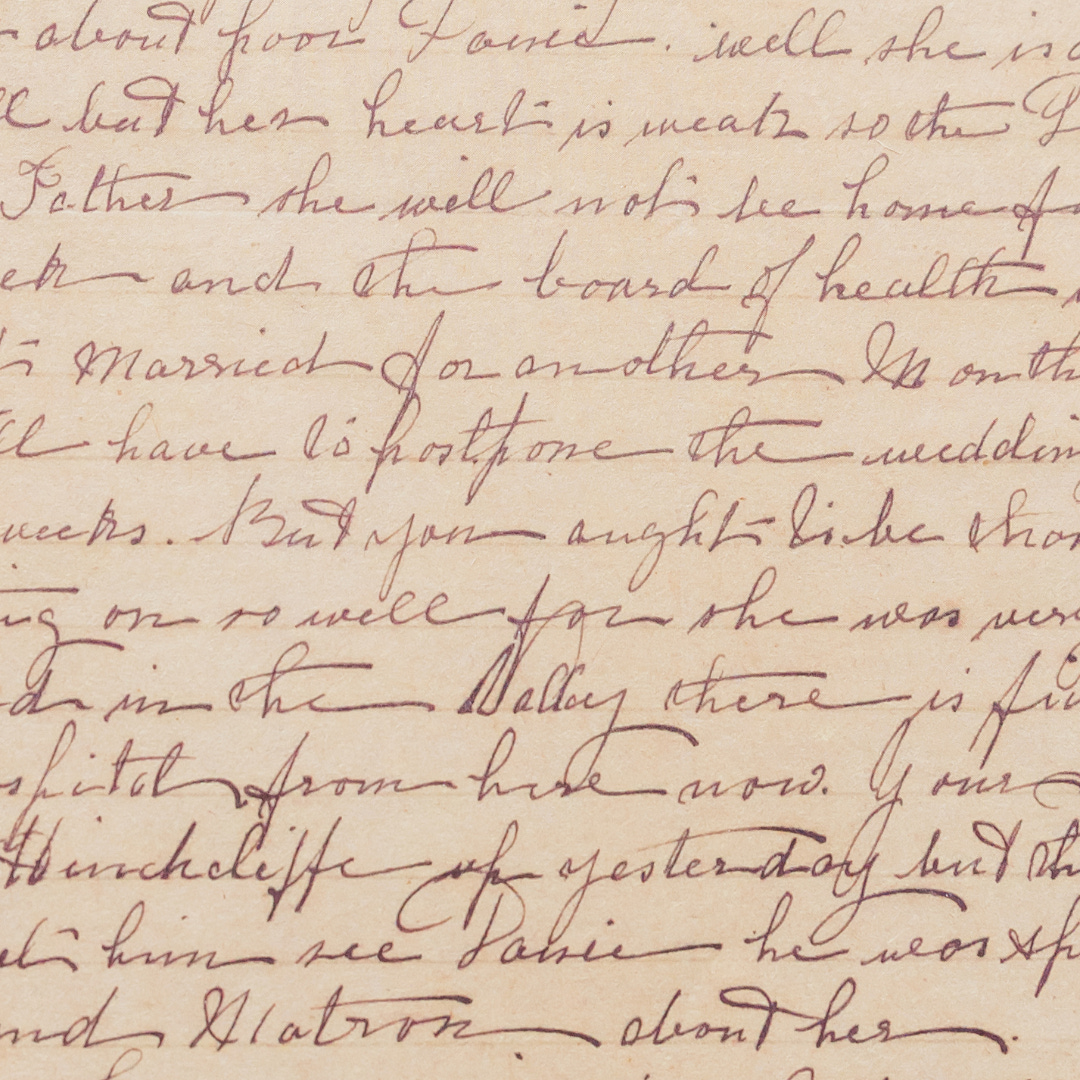 about poor Janie. well she is
but her heart is weak so the
Father she will not be home
and the board of health
married for another Month
have to postpone the wedding
weeks. But you aught to be
on so well for she was very
in the Valley there is
from here now. Your
Hinchcliffe up yesterday but
him see Janie he was
and Matron about her.